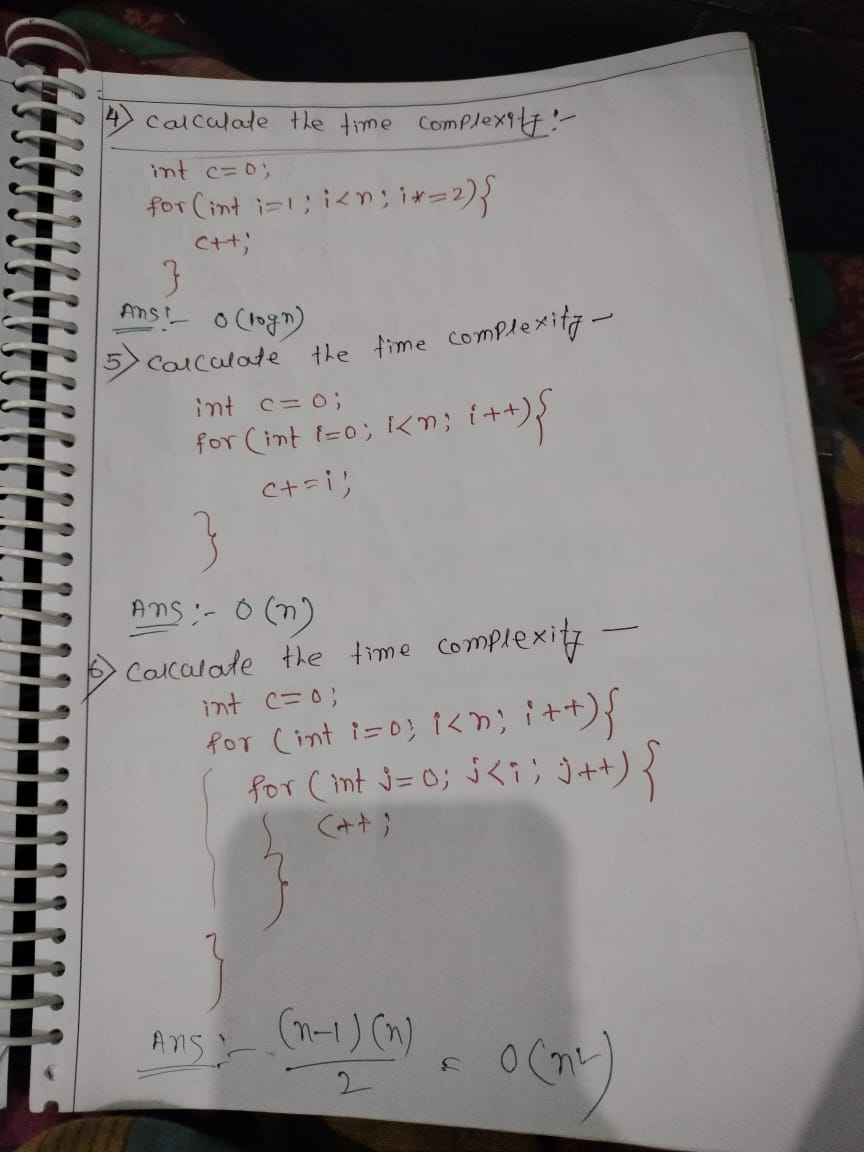 4) calculate the time complexity:-
int c=0;
for(int i=1; i<n; i*=2){
c++;
}
Ans:- O(logn)
5) calculate the time complexity-
int c=0;
for(int i=0; i<n; i++){
c+=i;
}
Ans:- O(n)
6) calculate the time complexity-
int c=0;
for(int i=0; i<n; i++){
for(int j=0; j<i; j++){
c++;
}
}
Ans:- (n-1)(n)/2 = O(n²)